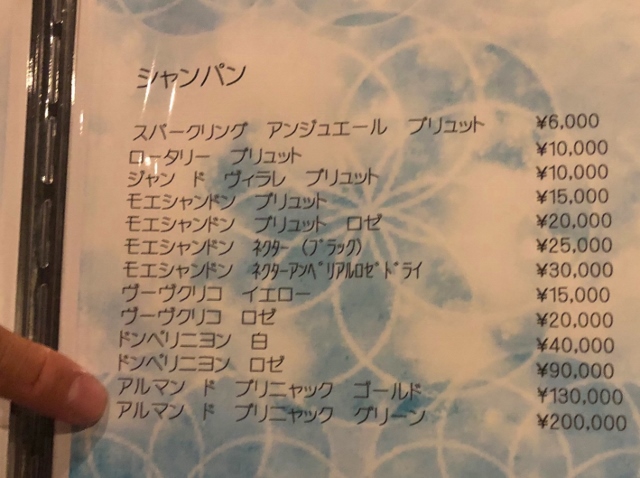 シャンパン
スパークリング アンジュエール ブリュット ¥6,000
ロータリー ブリュット ¥10,000
ジャン ド ヴィラレ ブリュット ¥10,000
モエシャンドン ブリュット ¥15,000
モエシャンドン ブリュット ロゼ ¥20,000
モエシャンドン ネクター（ブラック） ¥25,000
モエシャンドン ネクターアンペリアルロゼドライ ¥30,000
ヴーヴクリコ イエロー ¥15,000
ヴーヴクリコ ロゼ ¥20,000
ドンペリニヨン 白 ¥40,000
ドンペリニヨン ロゼ ¥90,000
アルマン ド ブリニャック ゴールド ¥130,000
アルマン ド ブリニャック グリーン ¥200,000